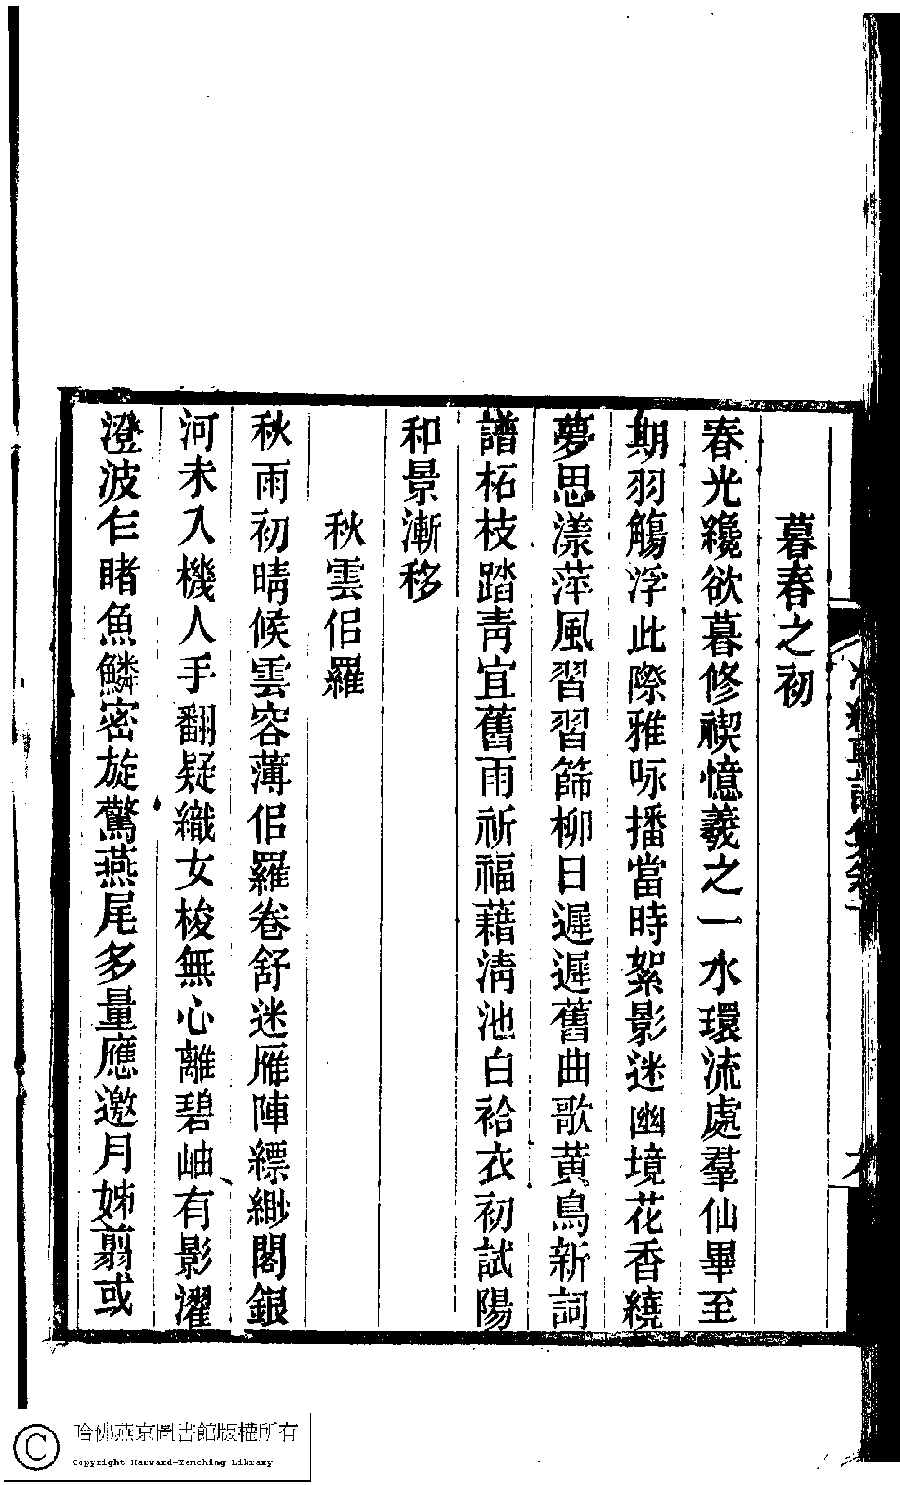 暮春之初
春光纔欲暮修禊憶羲之一水環流處羣仙畢至
期羽觴浮此際雅咏播當時絮影迷幽境花香繞
夢思漾萍風習習篩柳日遲遲舊曲歌黃鳥新詞
譜柘枝踏靑宜舊雨祈福藉淸池白袷衣初試陽
和景漸移
秋雲侣羅
秋雨初晴候雲容薄侣羅卷舒迷雁陣縹緲閣銀
河未入機人手翻疑織女梭無心離碧岫有影濯
澄波乍睹魚鱗密旋驚燕尾多量應邀月姊翦或
哈佛燕京圖書館版權所有
Copyright Harvard-Yenching Library